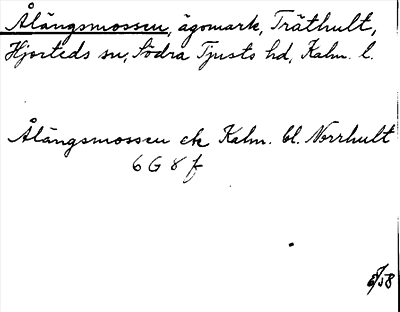 Ålängsmossen, ägomark, Träthult,
Hjorteds sn, Södra Tjusts hd, Kalm. l.
Ålängsmossen ek Kalm. bl. Norrhult
6 G 8 f